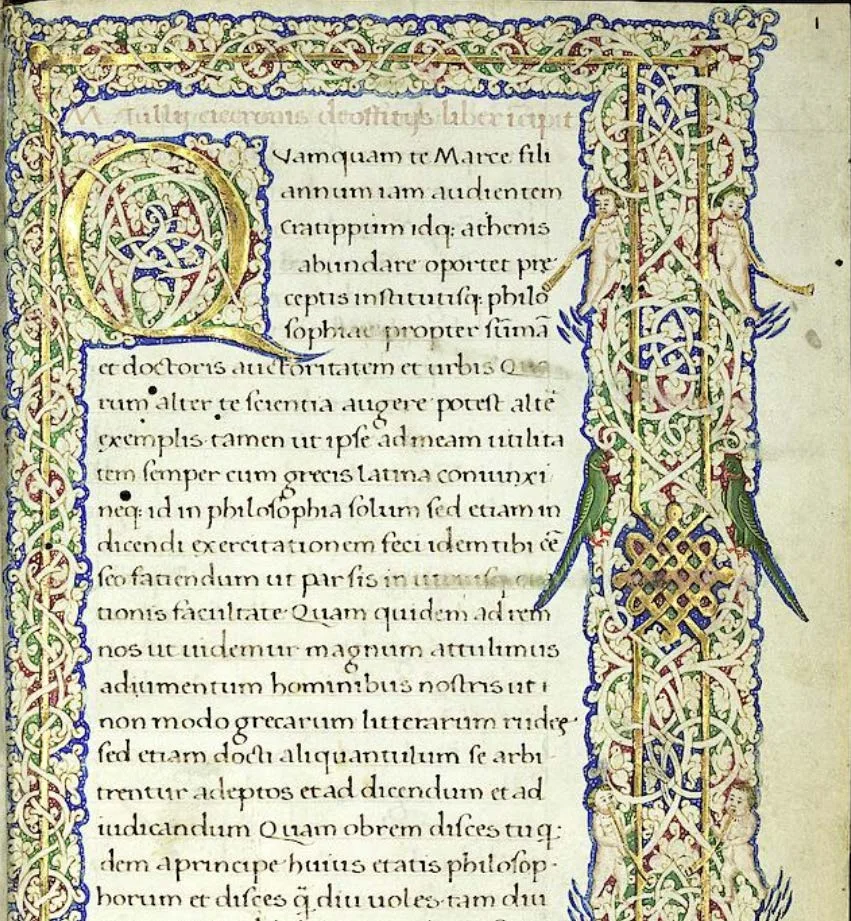 1
M. Tullij ciceronis de offitijs liber icipit
Vamquam te Marce fili
annum iam audientem
Cratippum idq: athenis
abundare oportet pre
ceptis institutisq: philo
sophiae propter sūmā
et doctoris auctoritatem et urbis Quo
rum alter te scientia augere potest altē
exemplis tamen ut ipse ad meam utilita
tem semper cum grecis latina coniunxi
neq: id in philosophia solum sed etiam in
dicendi exercitationem feci idem tibi cē
seo faciendum ut par sis in utriusque
tionis facultate Quam quidem ad rem
nos ut uidemur magnum attulimus
adiumentum hominibus nostris ut
non modo grecarum litterarum rudes
sed etiam docti aliquantulum se arbi
trentur adeptos et ad dicendum et ad
iudicandum Quam obrem disces tu q:
dem a principe huius etatis philosop
horum et disces q̄ diu uoles tam diu